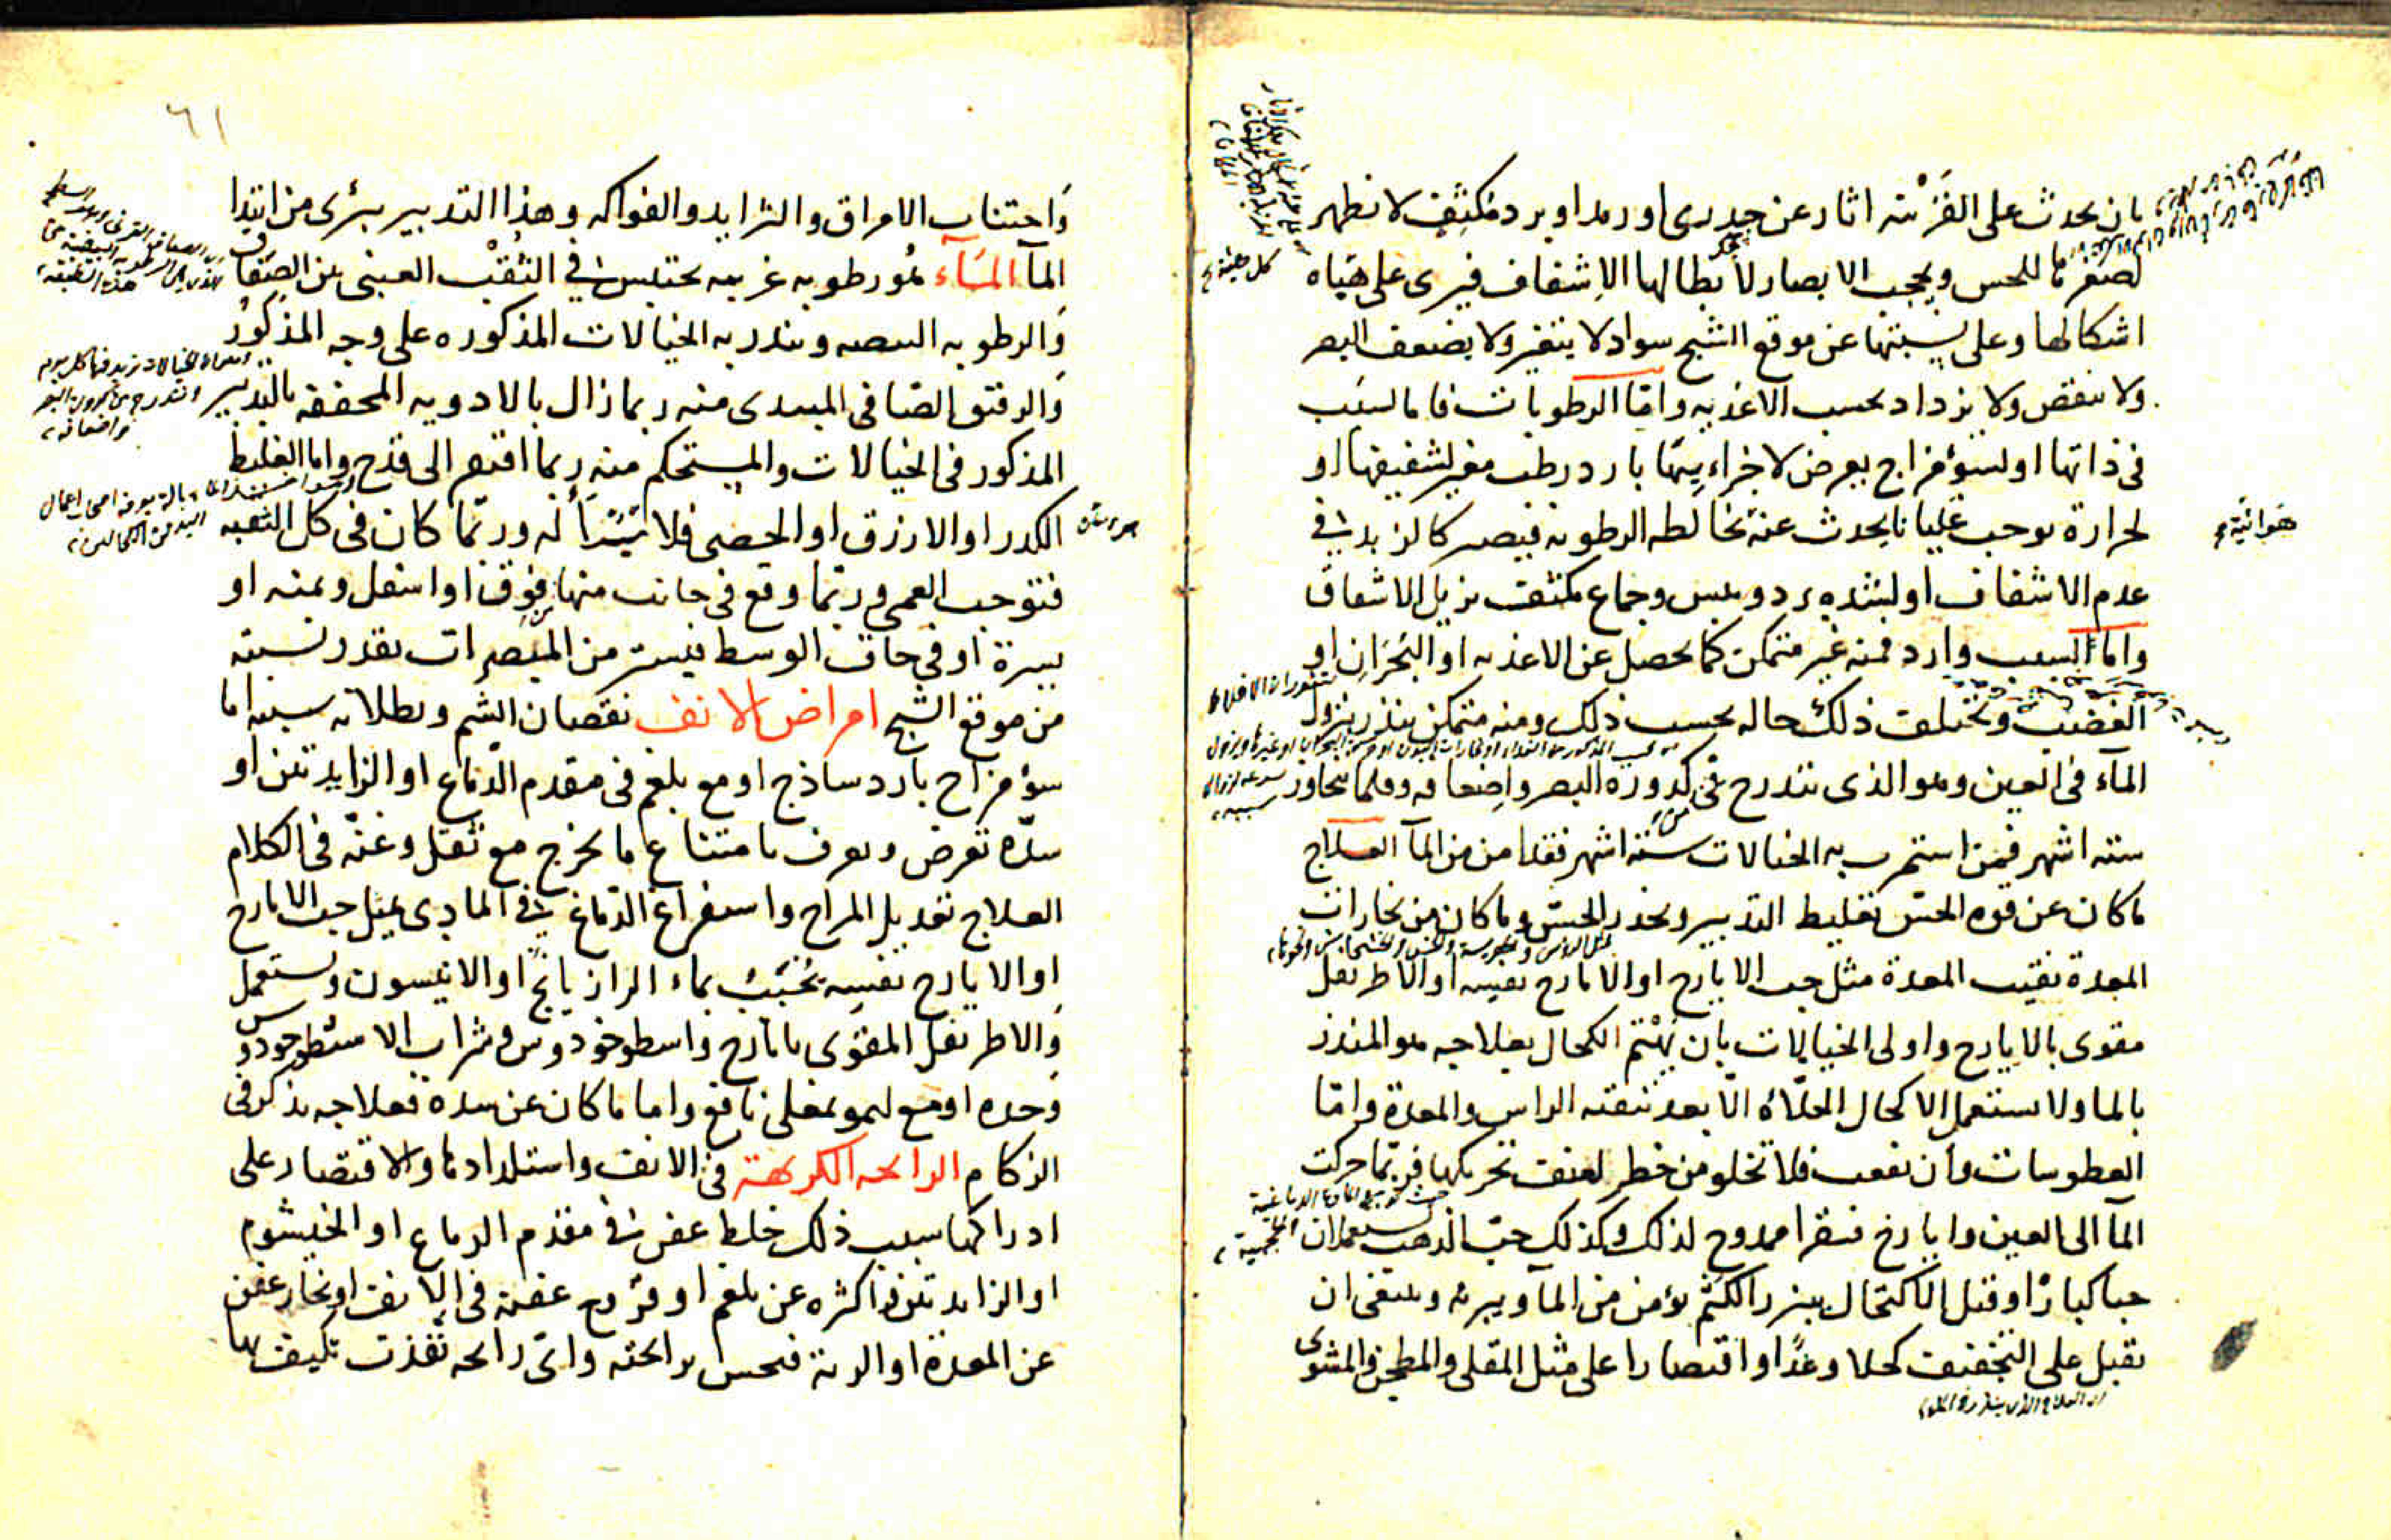 بان يحدث على القرنيه اثار عن جدرى او رمد او برد مكثف لا تظهر
لصغرها للحس ويحجب الابصار لابطالها الاشفاف فيرى على هيأه
كل هيئة
اشكالها وعلى نسبتها عن موقع الشبح سواد لا يتغير ولا يضعف البصر
ولا ينقص ولا يزداد بحسب الاغذيه واما الرطوبات فاما لسبب
فى ذاتها او لسؤ مزاج يعرض لاجزاء منها بارد رطب مغير لشفيفها او
لحرارة توجب غليانا يحدث عنه مخالطه الرطوبه فيصير كالزبد فى
هوائية
عدم الاشفاف او لشده برد ويبس وجماع مكثف يزيل الاشفاف
واما لسبب وارد فمنه غير متمكن كما يحصل عن الاغذيه او البحران او
الغضب ويختلف ذلك حاله بحسب ذلك ومنه متمكن ينذر بنزول
الماء فى العين وهو الذى يتدرج فى كدوره البصر واضعافه وقلما يجاوز
سته اشهر فمن استمرت به الخيالات سته اشهر فقد امن من الما العلاج
ما كان عن قوه الحس تغليظ التدبير ويخدر الحس وما كان من بخارات
المعدة تنقيت المعدة مثل حب الايارج او الايارج نفسه او الاطريفل
مقوى بالايارج واولى الخيالات بان يهتم الكحال بعلاجه هو المنذر
بالما ولا يستعمل الاكحال المحللة الا بعد تنقيه الراس والمعدة واما
العطوسات وان نفعت فلا تخلو من خطر لعنف تحريكها فربما حركت
المآ الى العين وايارج فيقرا ممدوح لذلك وكذلك حب الذهب يستعملان
حبا كبارا وقيل الاكتحال ببزر الكتم يؤمن من المآ ويبريه وينبغى ان
يقبل على التجفيف كحلا وغدا واقتصارا على مثل المقلى والمطجن والمشوى
٦١
واجتناب الامراق والثرايد والفواكه وهذا التدبير يبرئ من ابتدا
المآ المآء هو رطوبه غريبه تحتبس فى الثقب العنبى بين الصفاق
والرطوبه البيضيه وينذر به الخيالات المذكوره على وجه المذكور
والرقيق الصافى المبتدى منه ربما زال بالادويه المجففه بالتدبير
المذكور فى الخيالات والمستحكم منه ربما افتقر الى قدح واما الغليظ
الكدر او الازرق او الجصى فلا يتبرأ له وربما كان فى كل الثقبه
فتوجب العمى وربما وقع فى جانب منها فوق او اسفل ويمنه او
يسرة او فى حاق الوسط فيستر من المبصرات بقدر نسبته
من موقع الشبح امراض الانف نقصان الشم وبطلانه سببه اما
سؤ مزاج بارد ساذج او مع بلغم فى مقدم الدماغ او الزايدتين او
سده تعرض ويعرف بامتناع ما يخرج مع ثقل وغنه فى الكلام
العلاج تعديل المزاج واستفراغ الدماغ فى المادى بمثل حب الايارج
او الايارج نفسه يحبب بماء الرازيانج او الانيسون ويستعمل
والاطريفل المقوى بايارج واسطوخودوس وشراب الاسطوخودوس
وحده او مع ليمو بمغلى نافع واما ما كان عن سده فعلاجه يذكر فى
الزكام الرايحه الكريهة فى الانف واستلذاذها والاقتصار على
ادراكها سبب ذلك خلط عفن فى مقدم الدماغ او الخيشوم
او الزايدتين واكثره عن بلغم او قروح عفنه فى الانف او بخار عفن
عن المعدة او الرية فيحس برايحته واى رايحه نفذت تكيف بها